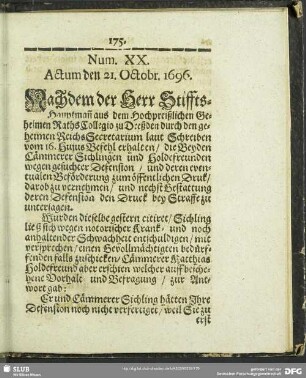 175.
Num. XX.
Actum den 21. Octobr. 1696.
Nachdem der Herr Stiffts-
Hauptmañ aus dem Hochpreißlichen Ge-
heimen Raths Collegio zu Dreßden durch den ge-
heimen Reichs Secretarium laut Schreiben
vom 16. Hujus Befehl erhalten / die Beyden
Cämmerer Sichlingen und Holdefreunden
wegen gesuchter Defension / und deren even-
tualen Beförderung zum öffentlichen Druk /
darob zu vernehmen / und nechst Gestattung
deren Defension den Druck bey Straffe zu
untersagen.
Wurden dieselbe gestern citiret / Sichling
ließ sich wegen notorischer Krank- und noch
anhaltender Schwachheit entschuldigen / mit
versprechen / einen Gevollmächtigten bedürf-
fenden falls zu schicken / Cämmerer Matthias
Holdefreund aber erschien welcher auff besche-
hene Vorhalt und Befragung / zur Ant-
wort gab:
Er und Cämmerer Sichling hätten Ihre
Defension noch nicht verfertiget / weil Sie zu
erst
SLUB
Wir führen Wissen.
gefördert von der
DFG